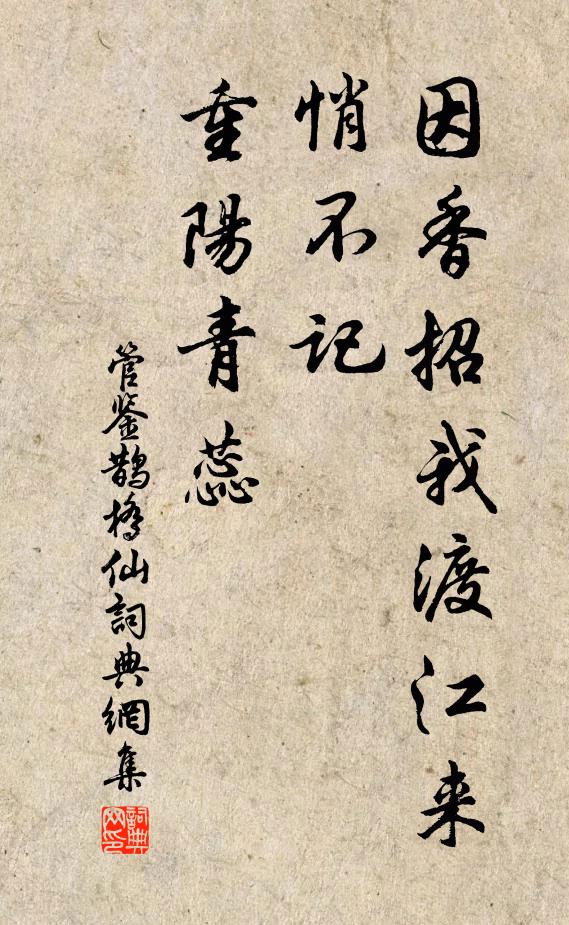 因香招我渡江来
悄不记
重陽青蕊
管鉴鹊橋仙詞典網集
詞典网印